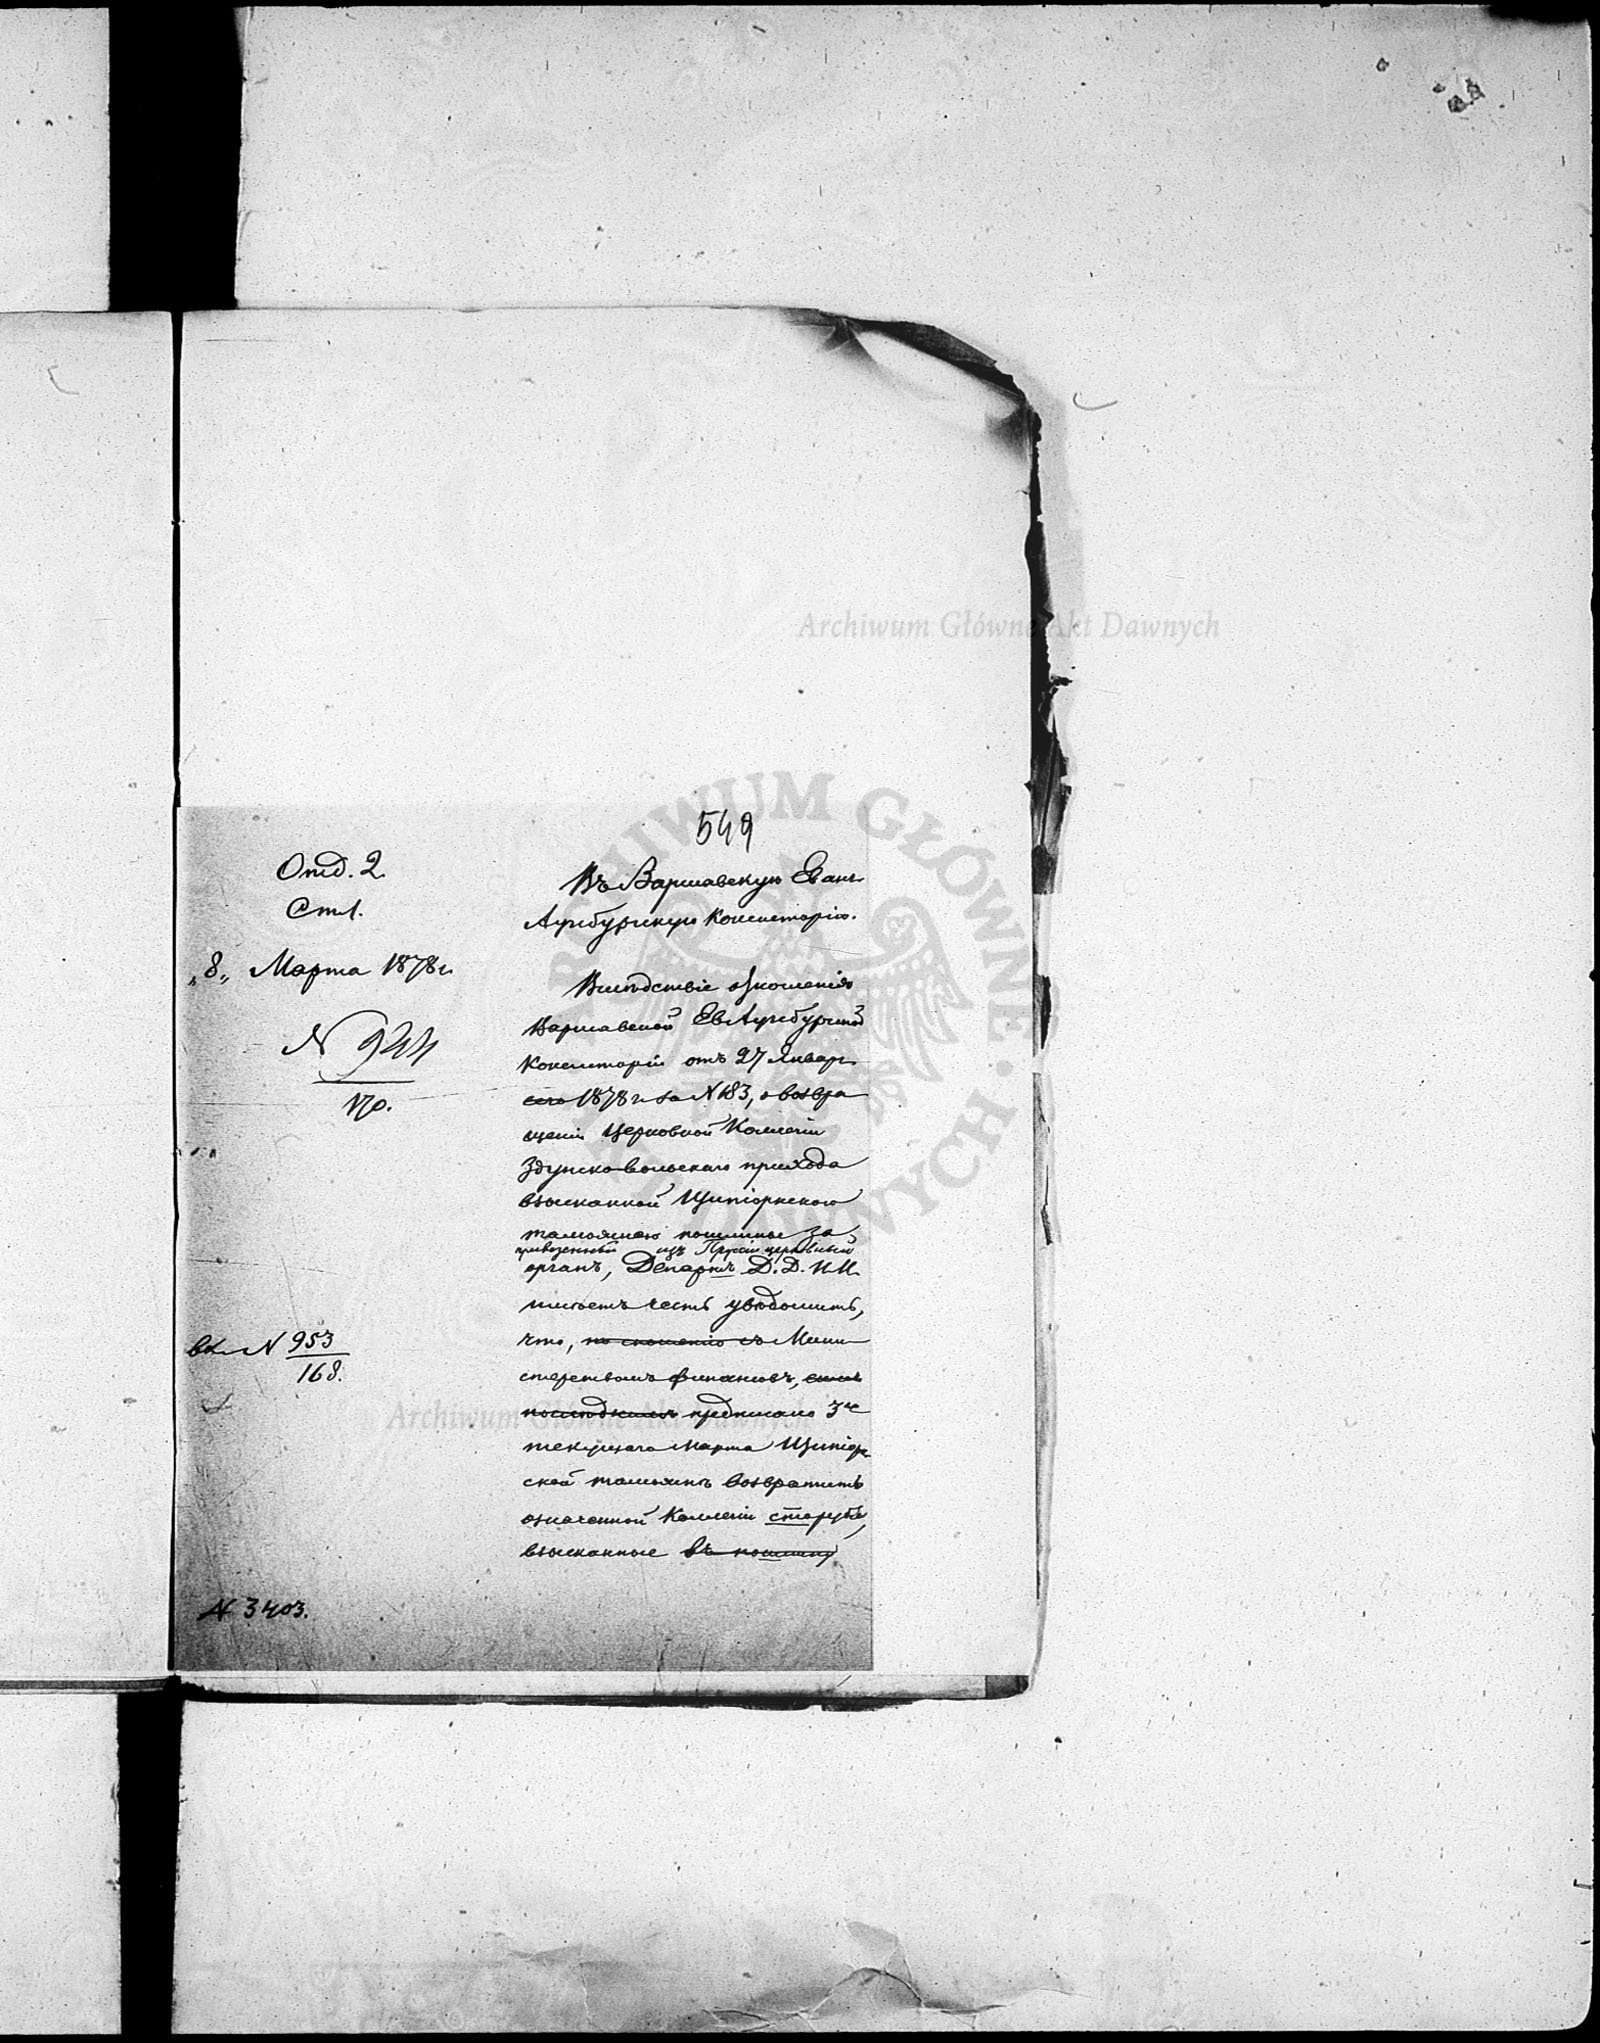 549
Отд. 2.
Ст1.
„8„ Марта 1878г.
N 944
170.
вх. N 953
168.
N 3403.
Въ Варшавскую Еванг.
Аугсбургскую Консисторію.
Вслѣдствіе отношенія
Варшавской Ев Аугсбургской
Консисторіи отъ 27 Января
сего 1878 г. за N 183, о возвра
щеніи Церковной Коллегіи
Здунско-Вольскаго прихода
взысканной Щипіорнскою
таможнею пошлины за
привезенный изъ Пруссіи церковный
органъ, Департ. Д. Д. И. И.
имѣетъ честь увѣдомить,
что, по сношенію съ Мини
стерствомъ финансовъ,
послѣднимъ предписано 3го
текущаго Марта Щипіорн
ской таможнѣ возвратить
означенной Коллегіи сто руб.,
взысканные въ пошлину
Archiwum Główne Akt Dawnych
ARCHIWUM GŁÓWNE AKT DAWNYCH
Archiwum Główne Akt Dawnych